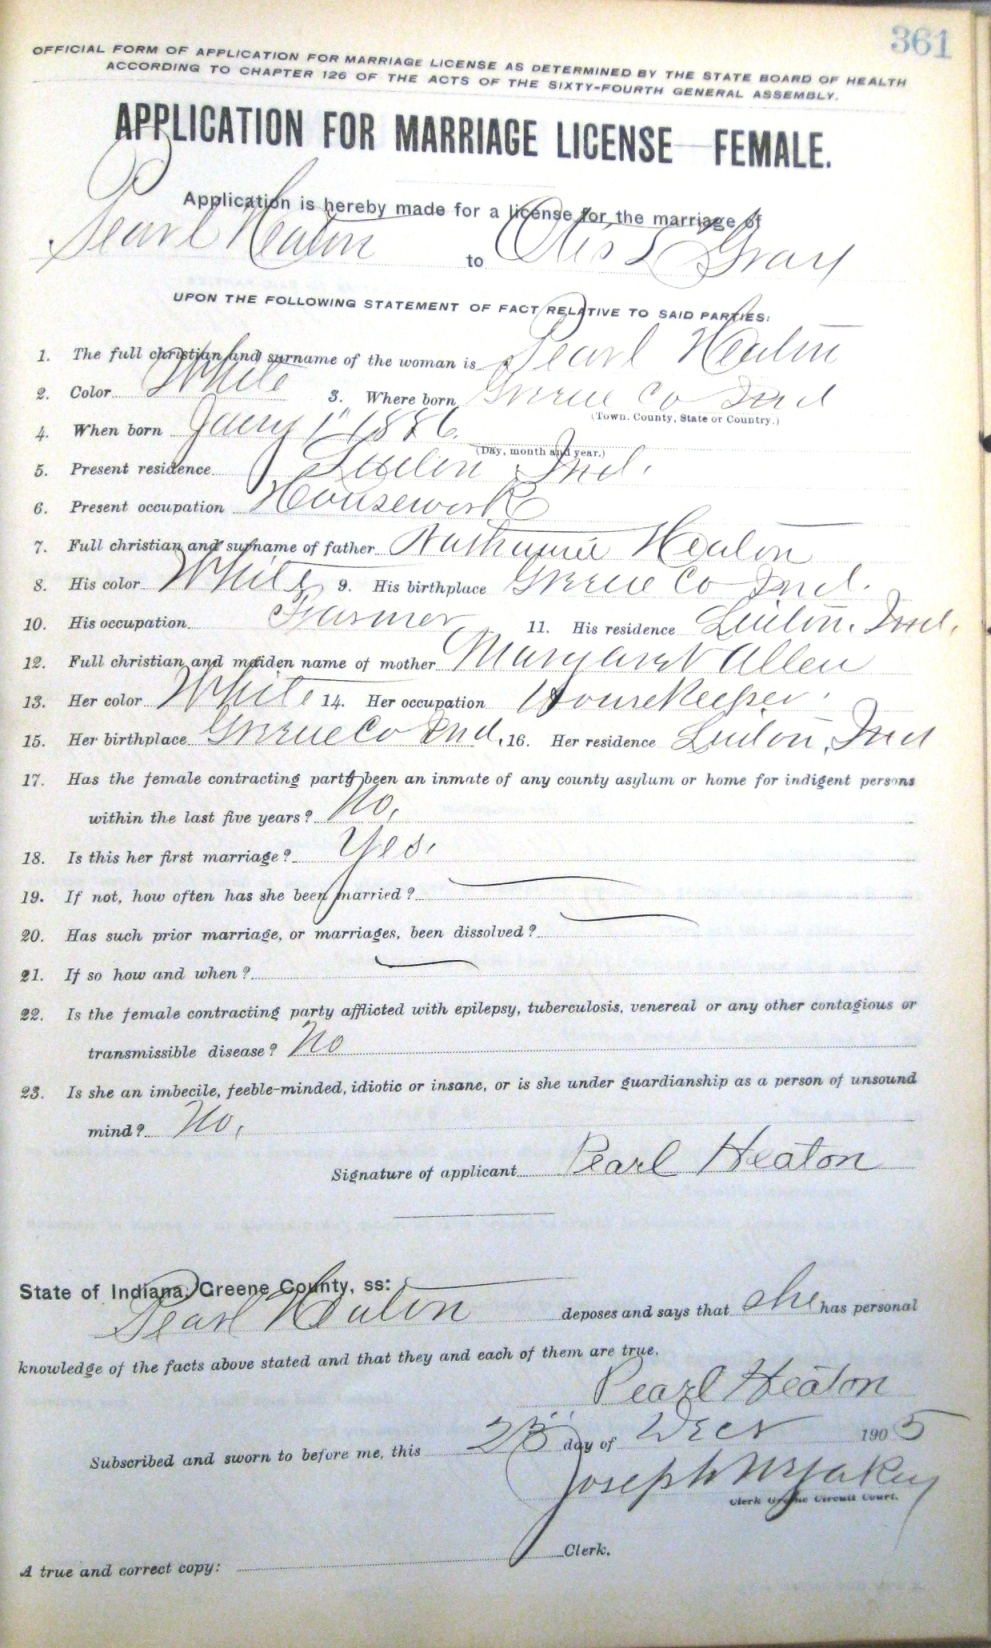 361
OFFICIAL FORM OF APPLICATION FOR MARRIAGE LICENSE AS DETERMINED BY THE STATE BOARD OF HEALTH
ACCORDING TO CHAPTER 126 OF THE ACTS OF THE SIXTY-FOURTH GENERAL ASSEMBLY.
APPLICATION FOR MARRIAGE LICENSE FEMALE.
Application is hereby made for a license for the marriage of
Pearl Heaton to Otis L Gray
UPON THE FOLLOWING STATEMENT OF FACT RELATIVE TO SAID PARTIES:
1. The full christian and surname of the woman is Pearl Heaton
2. Color White 3. Where born Greene Co Ind
(Town, County, State or Country.)
4. When born Jany 1" 1886.
(Day, month and year.)
5. Present residence Linton Ind.
6. Present occupation Housework
7. Full christian and surname of father Heaton
8. His color White 9. His birthplace Greene Co Ind.
10. His occupation Farmer 11. His residence Linton. Ind.
12. Full christian and maiden name of mother Margaret Allen
13. Her color White 14. Her occupation Housekeeper.
15. Her birthplace Greene Co Ind, 16. Her residence Linton, Ind
17. Has the female contracting party been an inmate of any county asylum or home for indigent persons
within the last five years? No,
18. Is this her first marriage? Yes.
19. If not, how often has she been married?
20. Has such prior marriage, or marriages, been dissolved?
21. If so how and when?
22. Is the female contracting party afflicted with epilepsy, tuberculosis, venereal or any other contagious or
transmissible disease? No
23. Is she an imbecile, feeble-minded, idiotic or insane, or is she under guardianship as a person of unsound
mind? No,
Signature of applicant Pearl Heaton
State of Indiana, Greene County, ss:
Pearl Heaton deposes and says that she has personal
knowledge of the facts above stated and that they and each of them are true.
Pearl Heaton
Subscribed and sworn to before me, this 23" day of Dec 1905
Joseph
Clerk Greene Circuit Court.
A true and correct copy: Clerk.